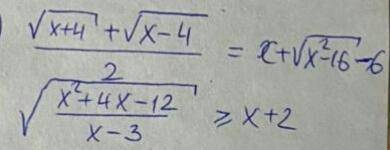 (√(x+4) + √(x-4)) / 2 = x + √(x²-16) - 6
√((x²+4x-12) / (x-3)) ≥ x+2